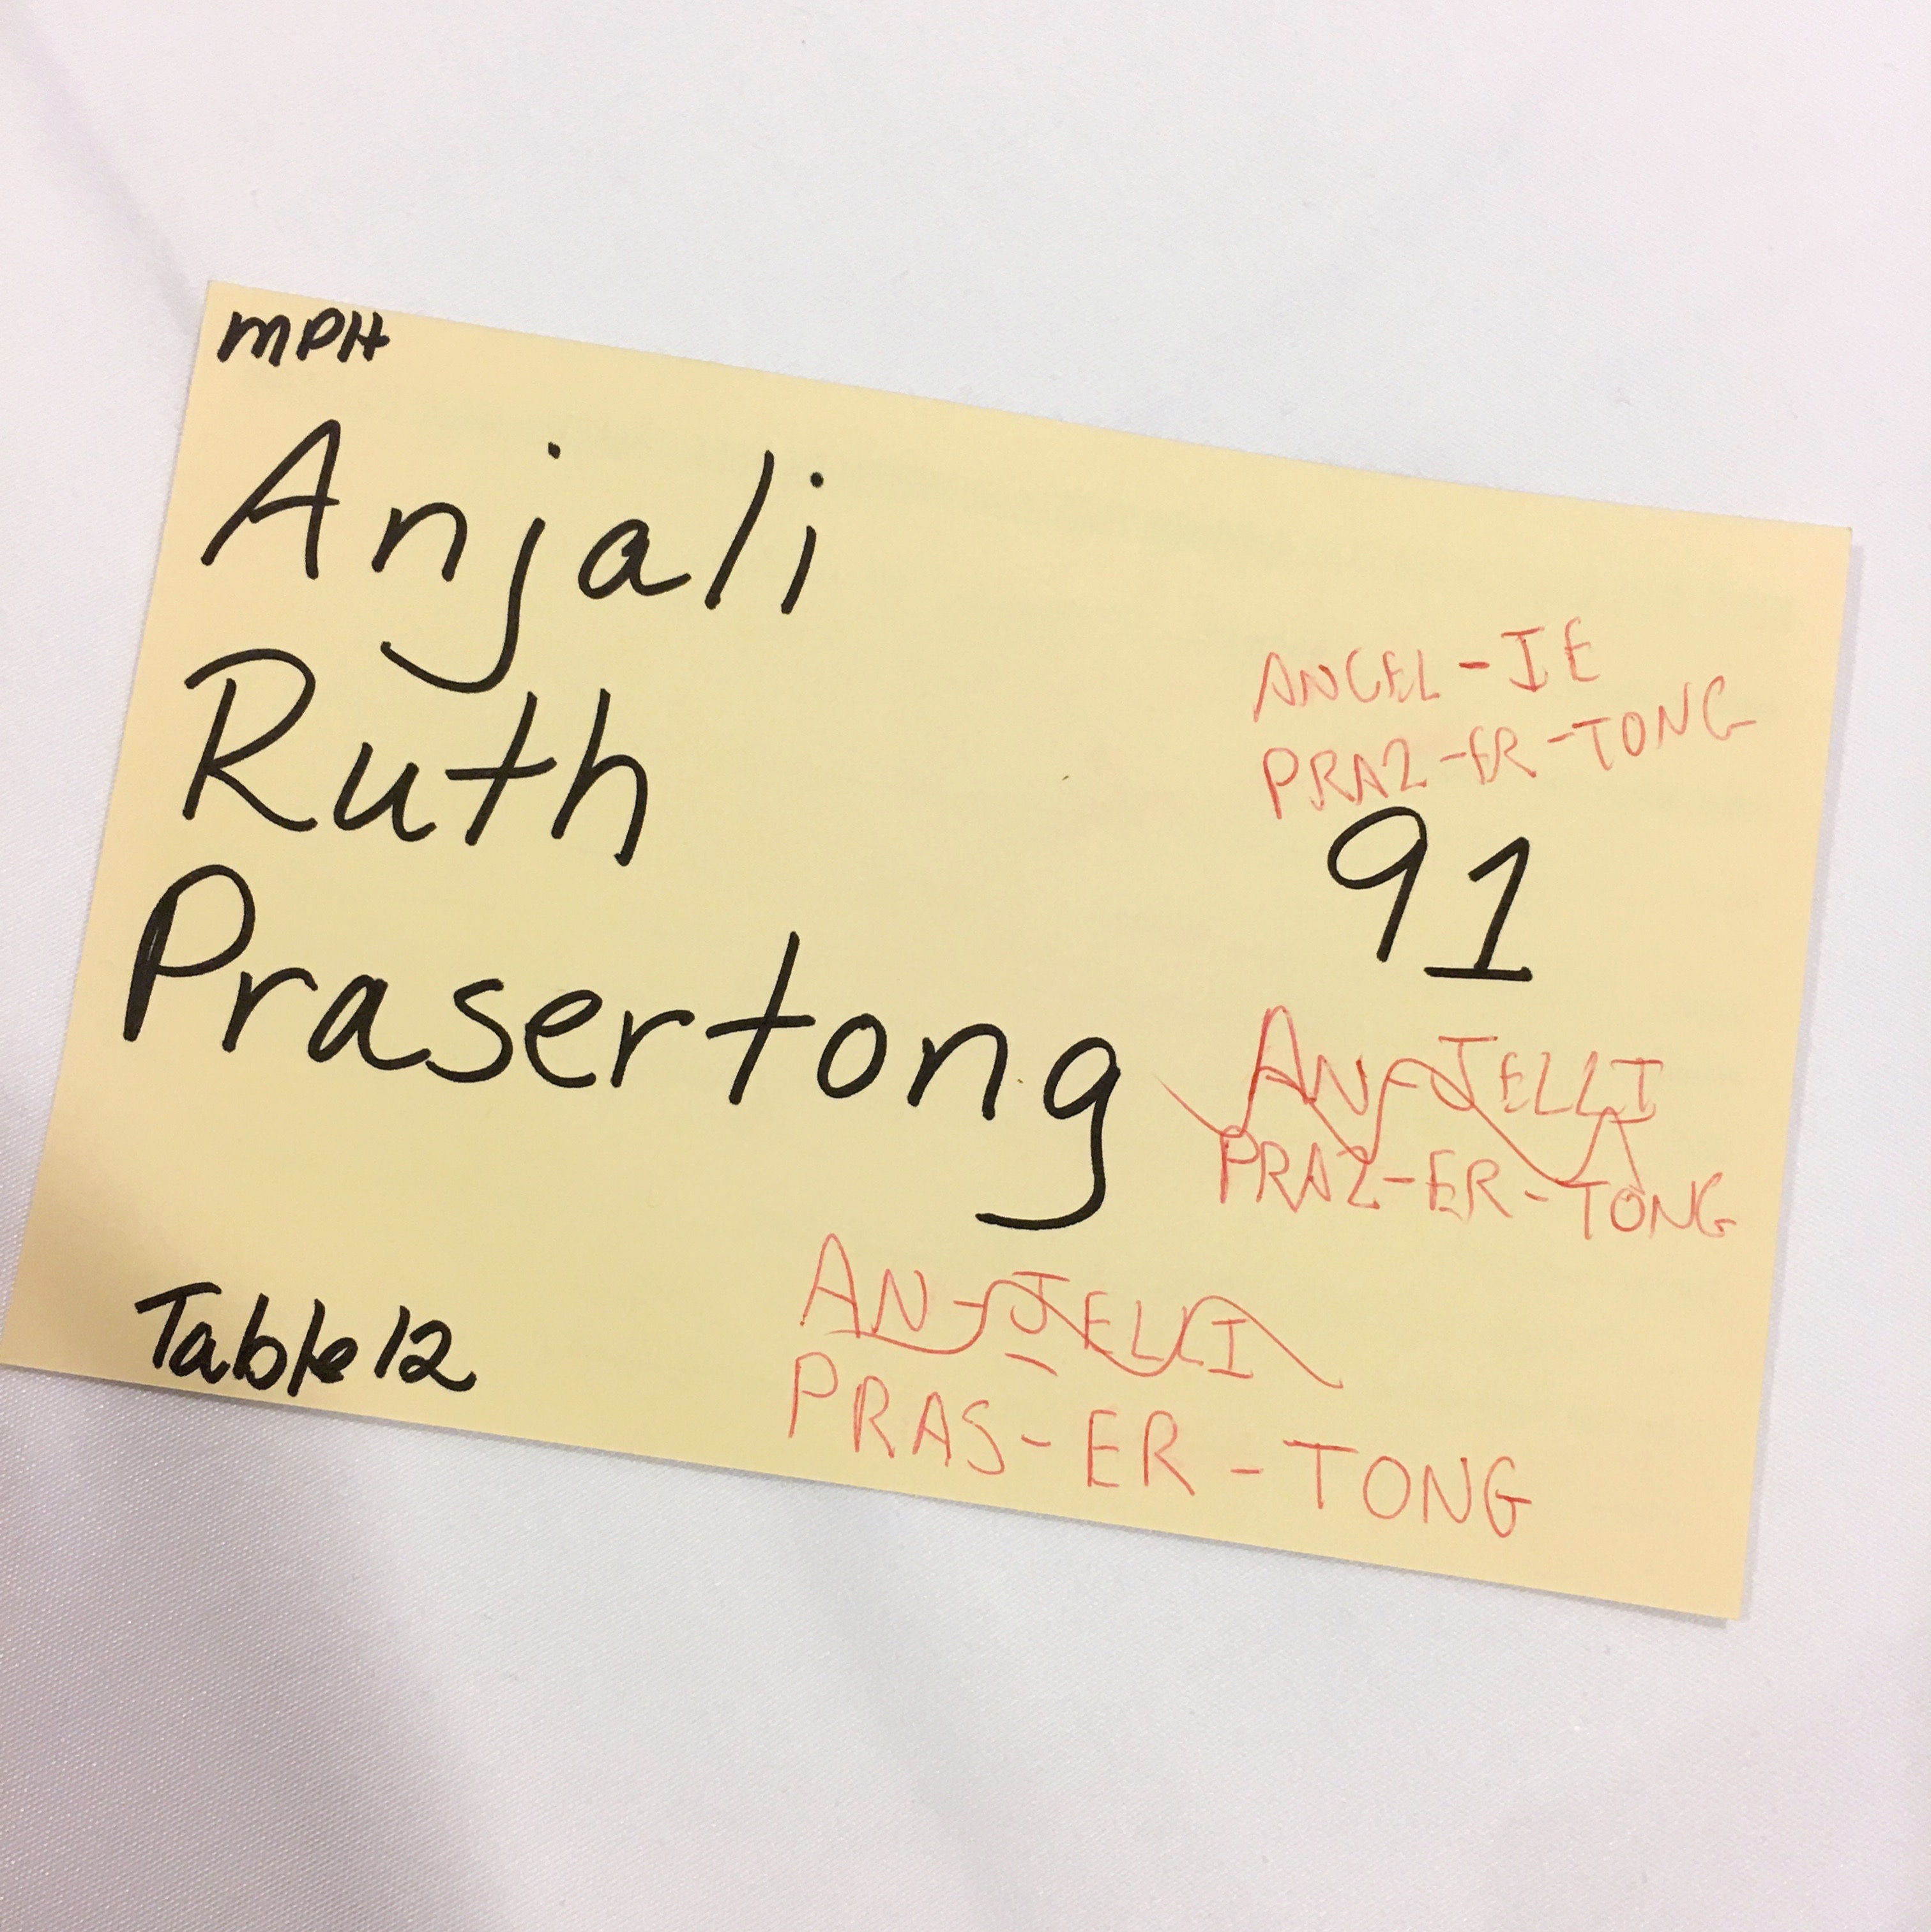 MPH
Anjali
Ruth
Prasertong
ANGEL-IE
PRAZ-ER-TONG
91
AN-JELLI
PRAZ-ER-TONG
AN-JELLI
PRAS-ER-TONG
Table 12